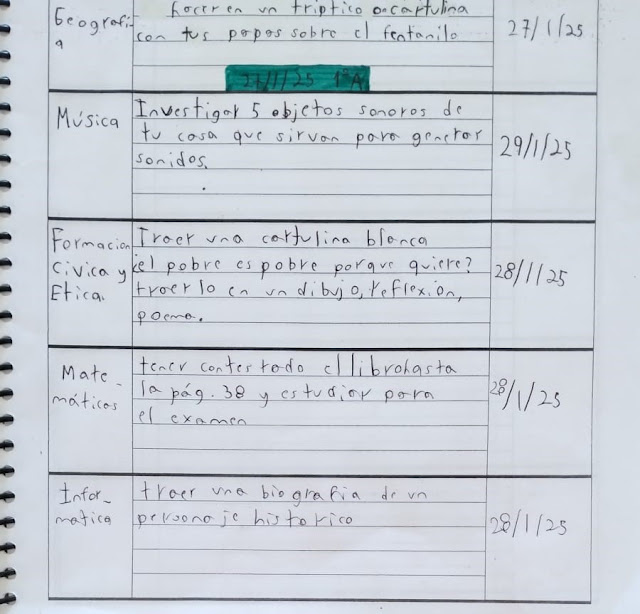 Geografi
a
hacer en un triptico en cartulina
con tus papas sobre el fentanilo
27/1/25
27/1/25 1°A
Música
Investigar 5 objetos sonoros de
tu casa que sirvan para generar
sonidos.
29/1/25
Formacion
Civica y
Etica.
Traer una cartulina blanca
¿el pobre es pobre porque quiere?
traerlo en un dibujo, reflexion,
poema.
28/1/25
Mate-
máticas
tener contestado el libro hasta
la pág. 38 y estudiar para
el examen
28/1/25
Infor-
matica
traer una biografia de un
personaje historico
28/1/25